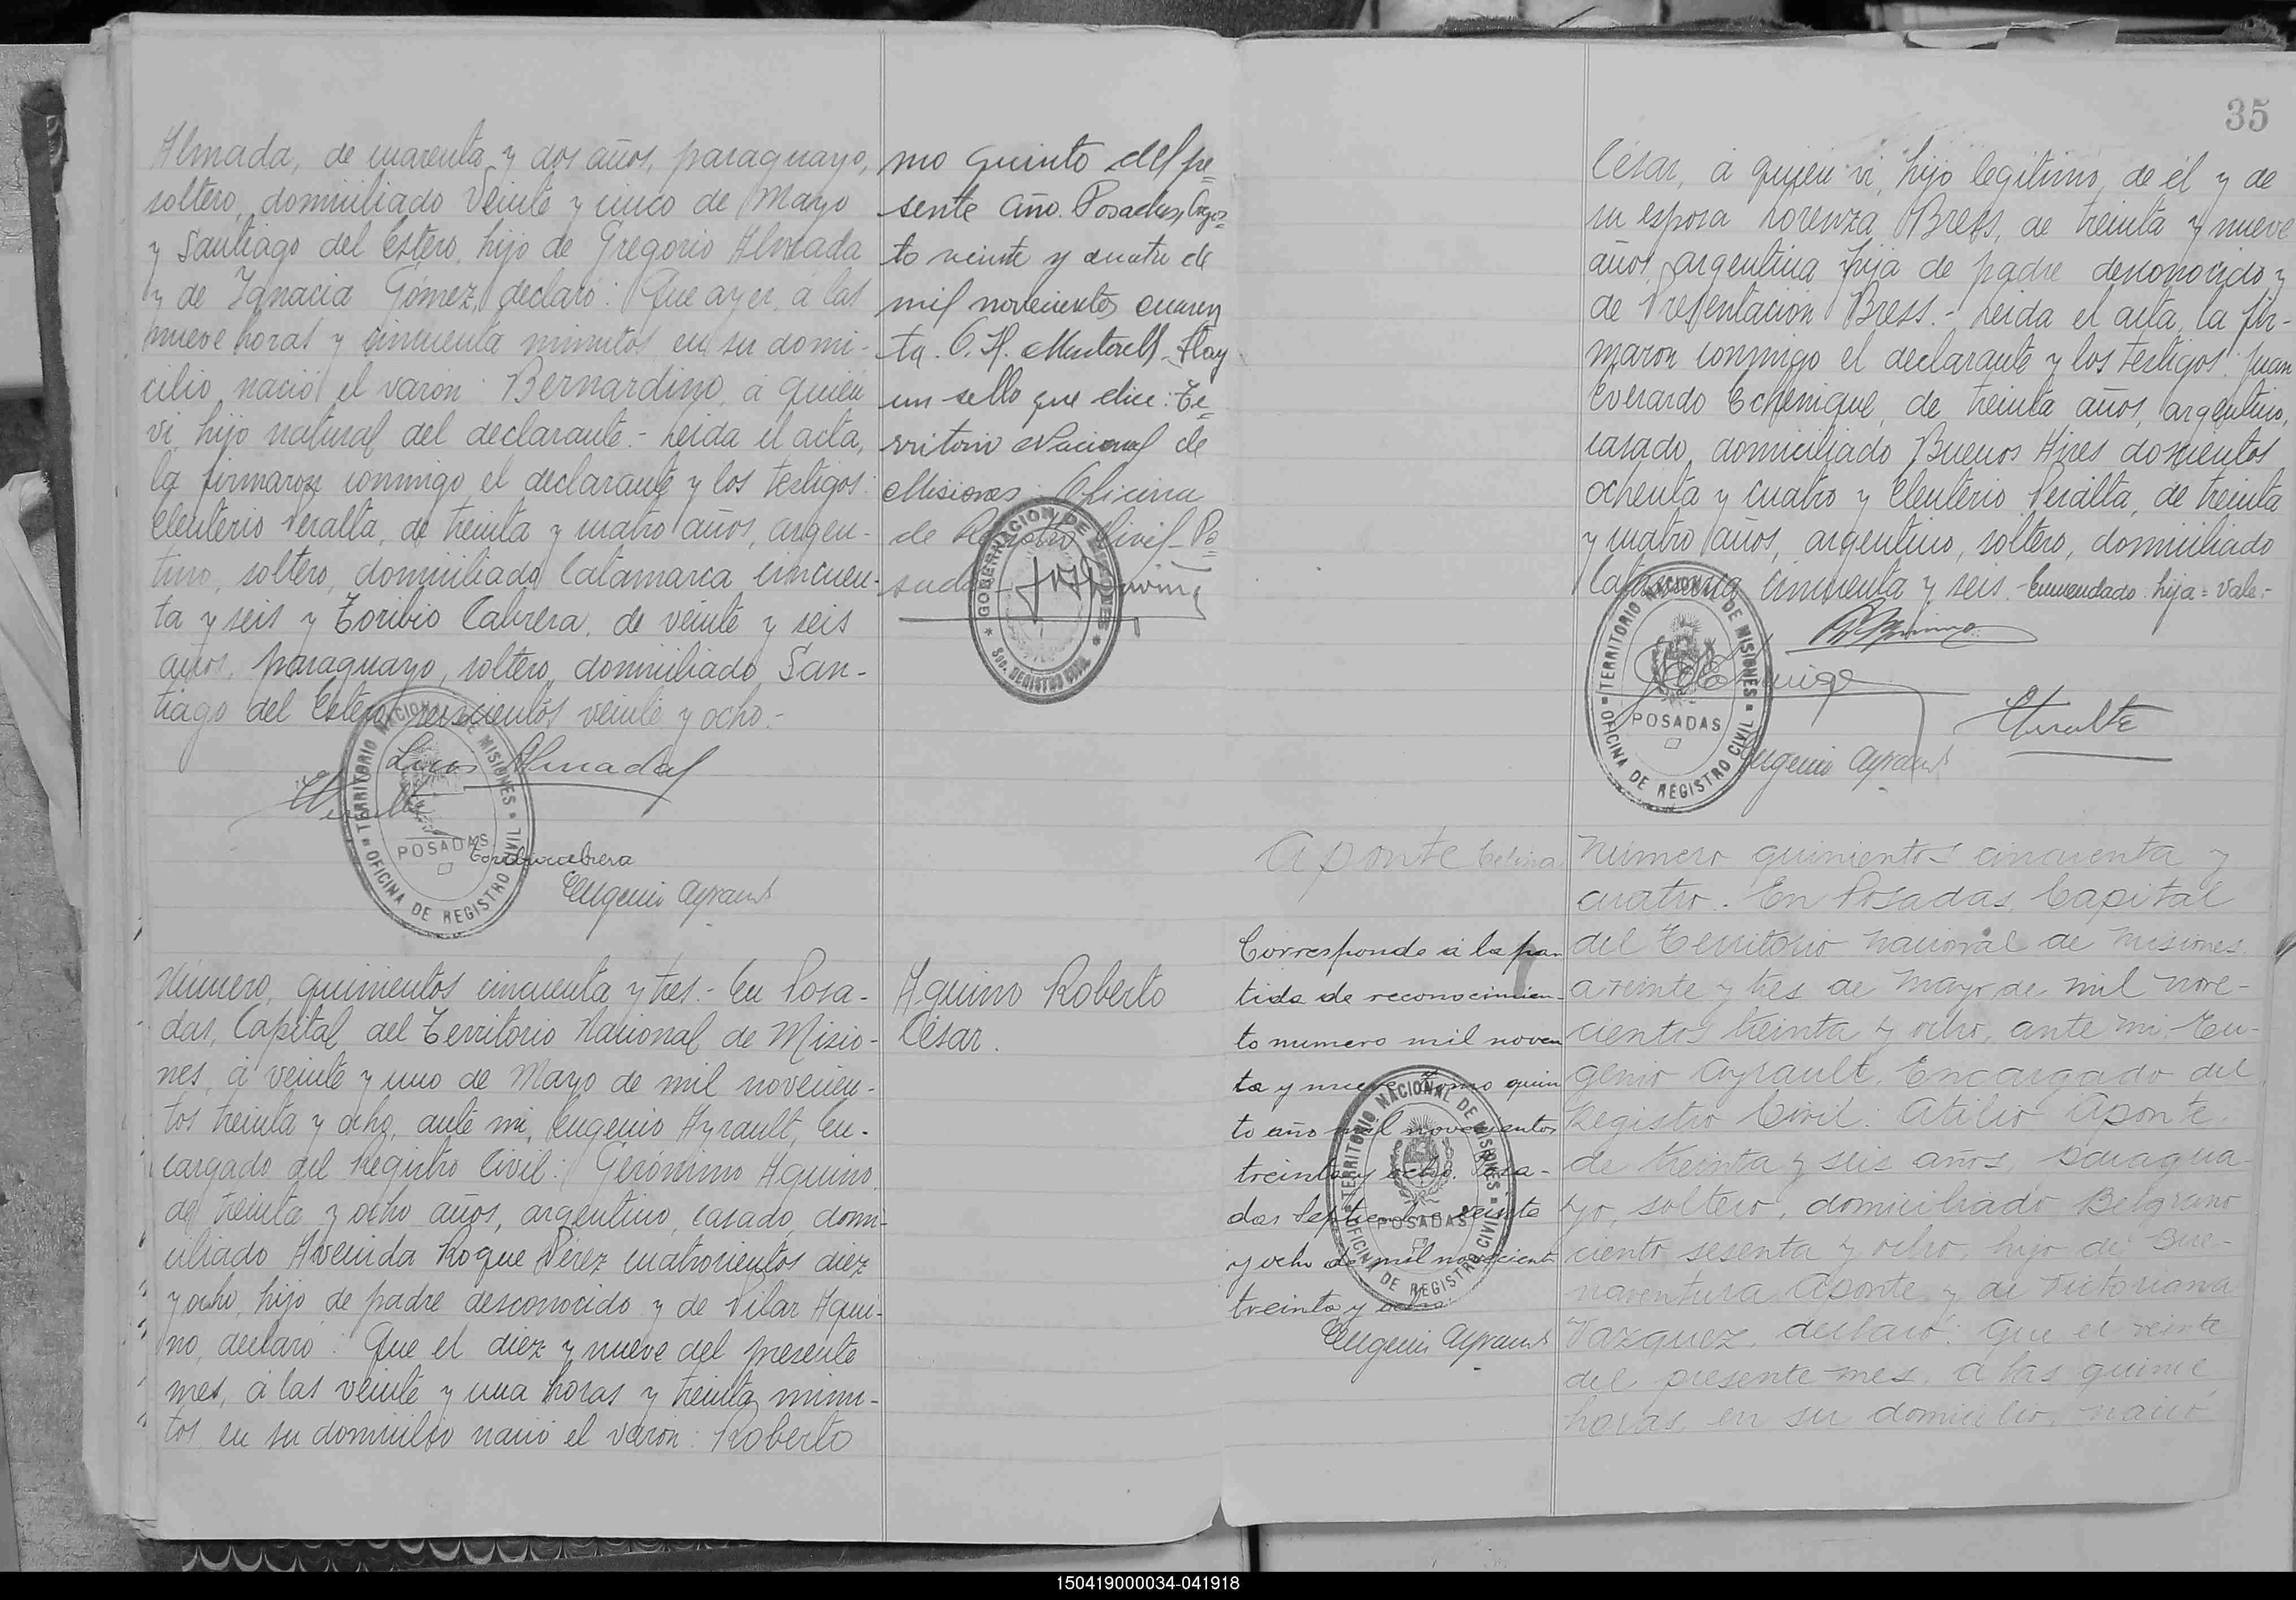 Almada, de cuarenta y dos años, paraguayo,
soltero, domiciliado Veinte y cinco de Mayo
y Santiago del Estero, hijo de Gregorio Almada
y de Ignacia Gómez, declaró: Que ayer, a las
nueve horas y cincuenta minutos, en su domi-
cilio, nació el varón: Bernardino, a quien
vi, hijo natural del declarante.- Leida el acta,
la firmaron conmigo el declarante y los testigos:
Eleuterio Peralta, de treinta y cuatro años, argen-
tino, soltero, domiciliado Catamarca cincuen-
ta y seis y Toribio Cabrera, de veinte y seis
años, paraguayo, soltero, domiciliado San-
tiago del Estero seiscientos veinte y ocho.-
Almada
TERRITORIO NACIONAL DE MISIONES
POSADAS
OFICINA DE REGISTRO CIVIL
Toribio Cabrera
Eugenio Ayrault
mo quinto del pre=
sente año. Posadas, Agos=
to veinte y cuatro de
mil novecientos cuaren
ta. Hay
un sello que dice: Te=
rritorio Nacional de
Misiones. Oficina
de Registro Civil - Po=
sadas
GOBERNACION DE MISIONES
Sec. REGISTRO CIVIL
Número, quinientos cincuenta y tres.- En Posa-
das, Capital del Territorio Nacional de Misio-
nes, á veinte y uno de Mayo de mil novecien-
tos treinta y ocho, ante mi, Eugenio Ayrault, En-
cargado del Registro Civil: Gerónimo Aquino,
de treinta y ocho años, argentino, casado, domi-
ciliado Avenida Roque Pérez cuatrocientos diez
y ocho, hijo de padre desconocido y de Pilar Aqui-
no, declaró: Que el diez y nueve del presente
mes, á las veinte y una horas y treinta minu-
tos, en su domicilio nació el varón: Roberto
Aquino Roberto
César.
35
César, á quien vi, hijo legítimo, de él y de
su esposa Lorenza Bress, de treinta y nueve
años, argentina hija de padre desconocido y
de Presentación Bress.- Leida el acta, la fir-
maron conmigo el declarante y los testigos: Juan
Everardo Echenique, de treinta años, argentino,
casado, domiciliado Buenos Aires doscientos
ochenta y cuatro y Eleuterio Peralta, de treinta
y cuatro años, argentino, soltero, domiciliado
Catamarca cincuenta y seis.- Enmendado: hija = Vale.-
TERRITORIO NACIONAL DE MISIONES
POSADAS
OFICINA DE REGISTRO CIVIL
Eugenio Ayrault
Aponte Celina
Corresponde a la par
tida de reconocimien-
to numero mil noven
ta y nueve Tomo quin
to año mil novecientos
treinta y ocho. Posa-
das Septiembre veinte
y ocho de mil novecient
treinta y ocho
TERRITORIO NACIONAL DE MISIONES
POSADAS
OFICINA DE REGISTRO CIVIL
Eugenio Ayrault
Número quinientos cincuenta y
cuatro. En Posadas, Capital
del Territorio Nacional de Misiones
a veinte y tres de Mayo de mil nove-
cientos treinta y ocho, ante mi, Eu-
genio Ayrault, Encargado del
Registro Civil: Atilio Aponte,
de treinta y seis años, paragua-
yo, soltero, domiciliado Belgrano
ciento sesenta y ocho, hijo de Bue-
naventura Aponte y de Victoriana
Vazquez, declaró: Que el veinte
del presente mes, a las quince
horas, en su domicilio, nació
150419000034-041918